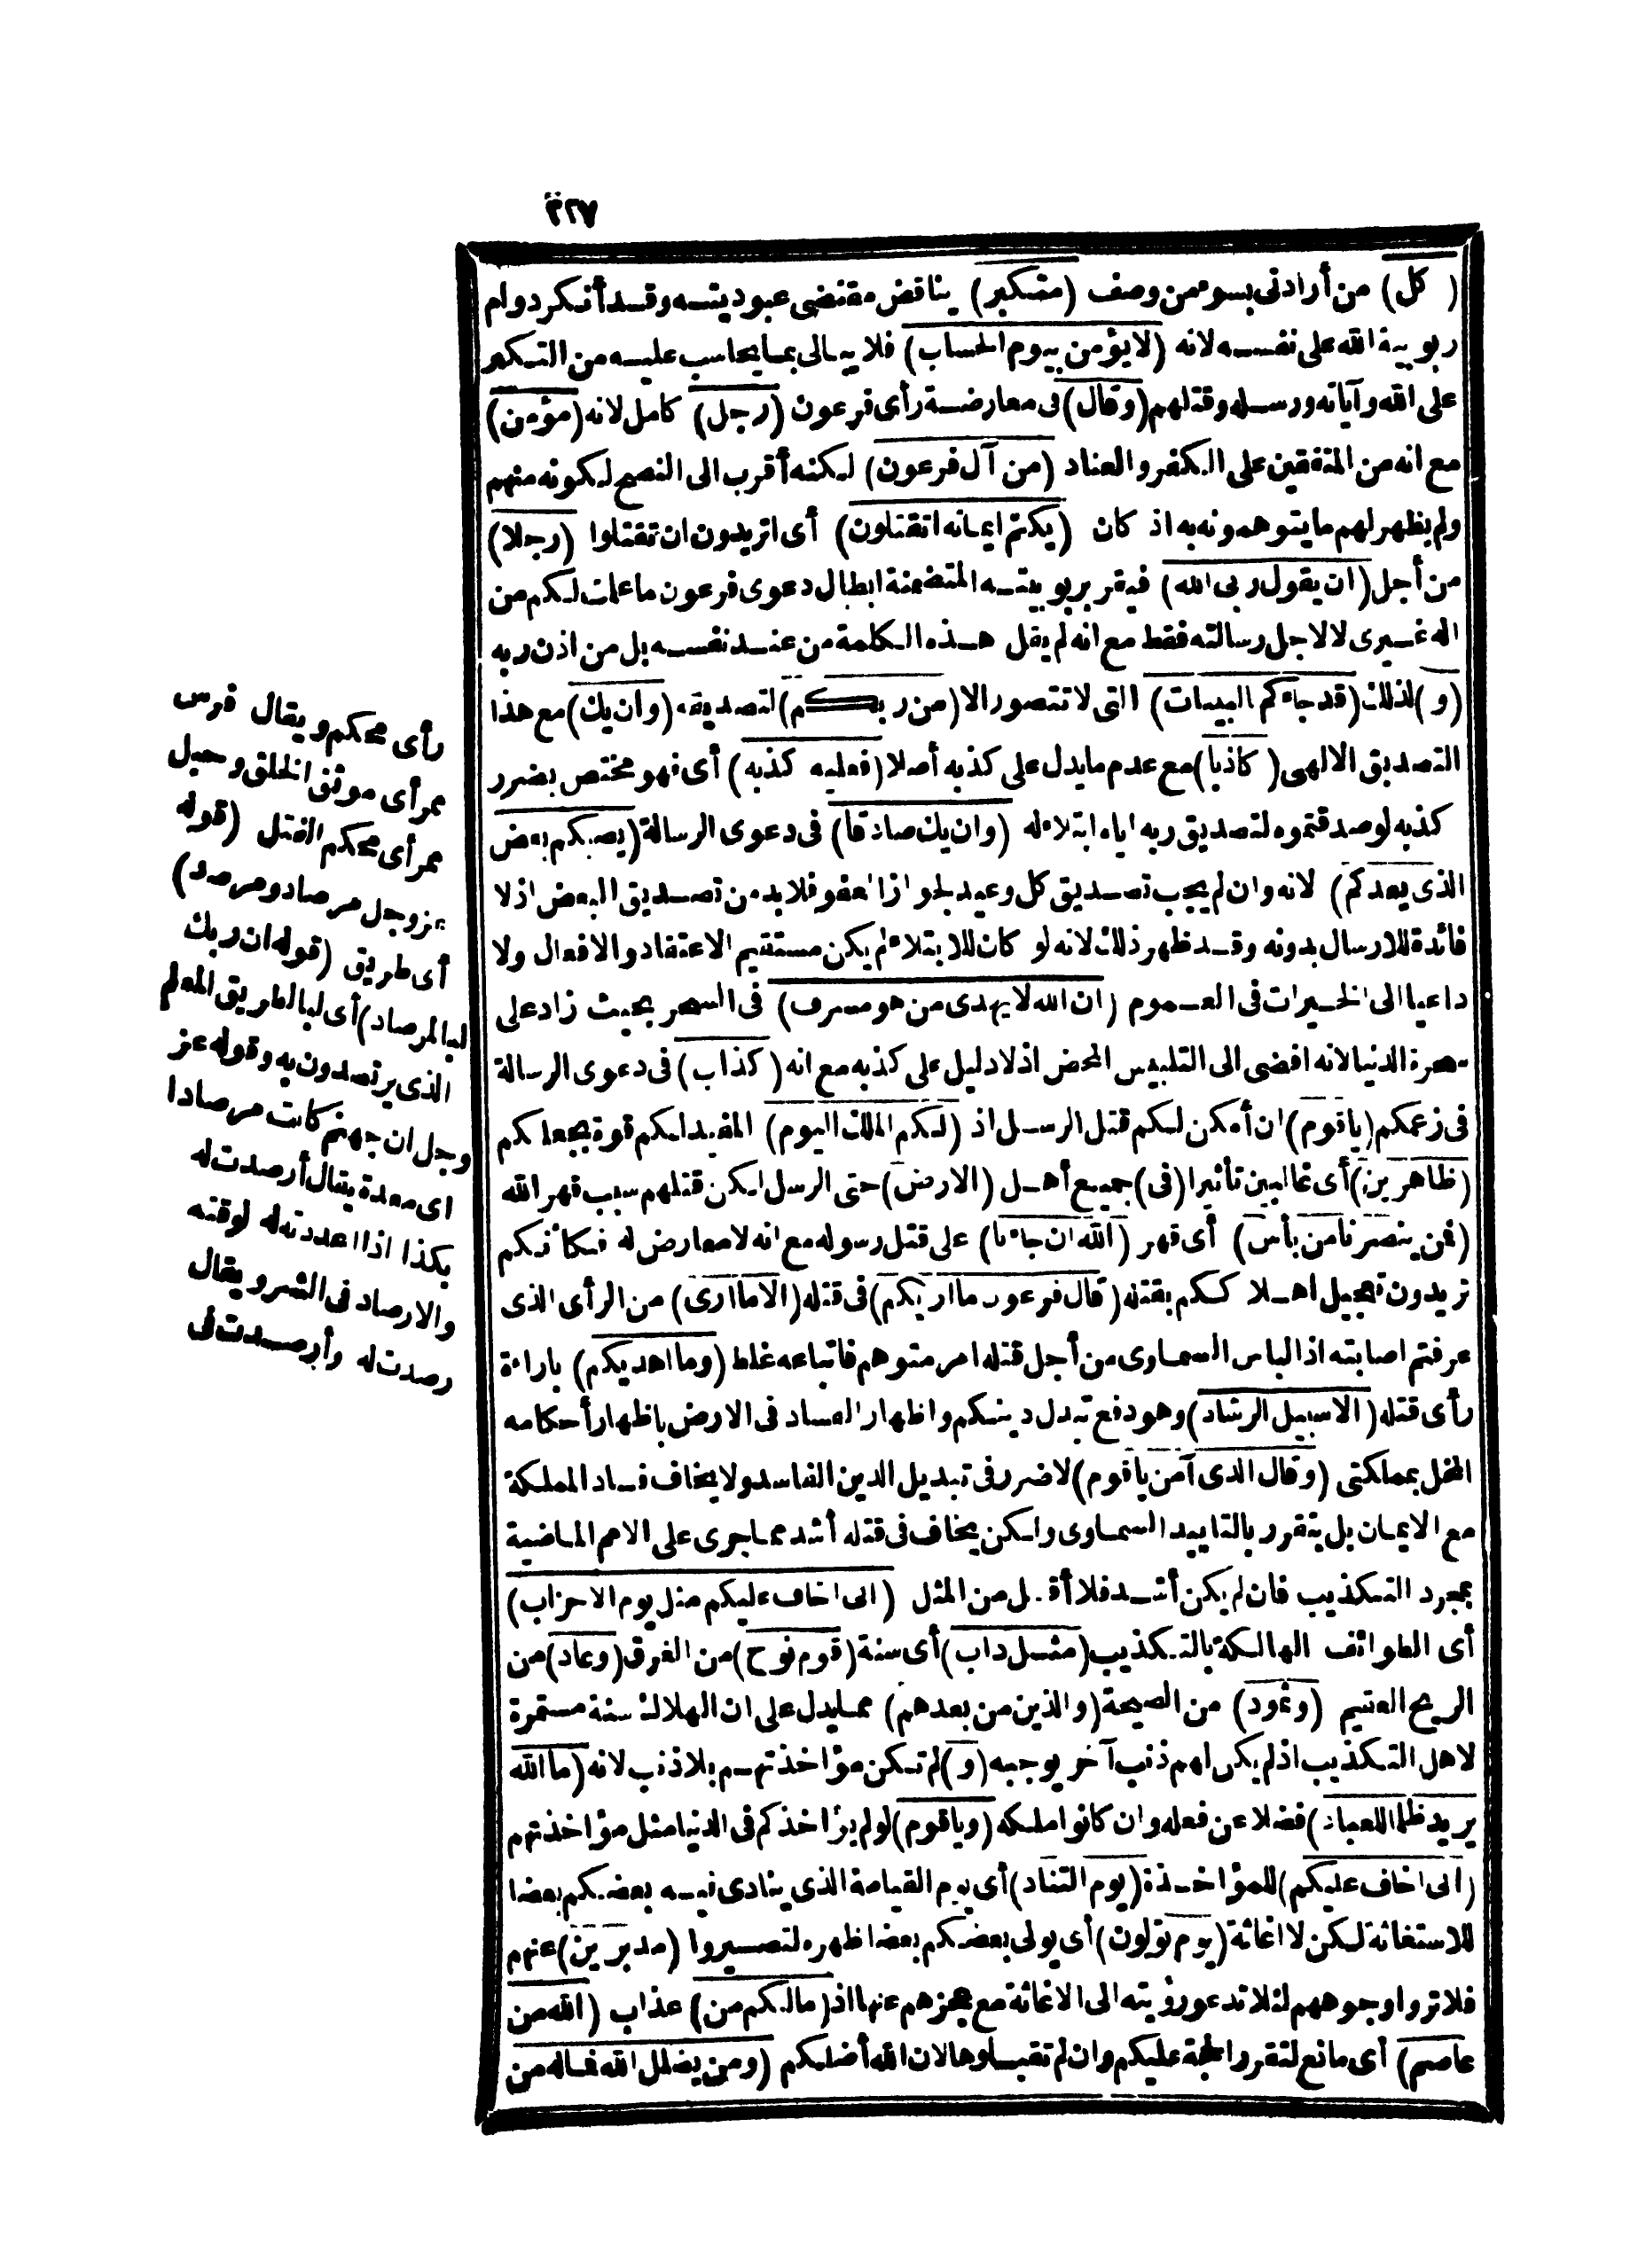 ٣٢٧
(كل) من أرادنى بسوء من وصف (متكبر) يناقض مقتضى عبوديته وقد أنكر دوام
ربوبية الله على نفسه لانه (لا يؤمن بيوم الحساب) فلا يبالى بما يحاسب عليه من التكبر
على الله وآياته ورسله وقتلهم (وقال) فى معارضة رأى فرعون (رجل) كامل لانه (مؤمن)
مع انه من المتفقين على الكفر والعناد (من آل فرعون) لكنه أقرب الى النصح لكونه منهم
ولم يظهر لهم ما يتوهمونه به اذ كان (يكتم ايمانه اتقتلون) أى اتريدون ان تقتلوا (رجلا)
من أجل (ان يقول ربى الله) فيقر بربوبيته المتضمنة ابطال دعوى فرعون ما علمت لكم من
اله غيرى لا لاجل رسالته فقط مع انه لم يقل هذه الكلمة من عند نفسه بل من اذن ربه
(و) لذلك (قد جاءكم البينات) التى لا تتصور الا (من ربكم) لتصديقه (وان يك) مع هذا
التصديق الالهى (كاذبا) مع عدم ما يدل على كذبه أصلا (فعليه كذبه) أى فهو مختص بضرر
كذبه لو صدقتموه لتصديق ربه اياه ابتلاء له (وان يك صادقا) فى دعوى الرسالة (يصبكم بعض
الذى يعدكم) لانه وان لم يجب تصديق كل وعيد لجواز العفو فلا بد من تصديق البعض اذ لا
فائدة للارسال بدونه وقد ظهر ذلك لانه لو كان للابتلاء لم يكن مستقيم الاعتقاد والافعال ولا
داعيا الى الخيرات فى العموم (ان الله لا يهدى من هو مسرف) فى السحر بحيث زاد على
سحرة الدنيا لانه افضى الى التلبيس المحض اذ لا دليل على كذبه مع انه (كذاب) فى دعوى الرسالة
فى زعمكم (يا قوم) ان أمكن لكم قتل الرسل اذ (لكم الملك اليوم) المفيد لكم قوة يجعلكم
(ظاهرين) أى غالبين تأثيرا (فى) جميع أهل (الارض) حتى الرسل لكن قتلهم سبب قهر الله
(فمن ينصرنا من بأس) أى قهر (الله ان جاءنا) على قتل رسوله مع انه لا معارض له فكانكم
تريدون تعجيل اهلاككم بقتله (قال فرعون ما اريكم) فى قتله (الا ما ارى) من الرأى الذى
عرفتم اصابته اذ الباس السماوى من أجل قتله امر متوهم فاتباعه غلط (وما اهديكم) باراءة
رأى قتله (الا سبيل الرشاد) وهو دفع تبدل دينكم واظهار الفساد فى الارض باظهار أحكامه
المخل بمملكتى (وقال الذى آمن يا قوم) لا ضرر فى تبديل الدين الفاسد ولا يخاف فساد المملكة
مع الايمان بل يتقرر بالتاييد السماوى ولكن يخاف فى قتله أشد مما جرى على الامم الماضية
بمجرد التكذيب فان لم يكن أشد فلا أقل من المثل (انى اخاف عليكم مثل يوم الاحزاب)
أى الطوائف الهالكة بالتكذيب (مثل داب) أى سنة (قوم نوح) من الغرق (وعاد) من
الريح العقيم (وثمود) من الصيحة (والذين من بعدهم) مما يدل على ان الهلاك سنة مستمرة
لاهل التكذيب اذ لم يكن لهم ذنب آخر يوجبه (و) لم تكن مؤاخذتهم بلا ذنب لانه (ما الله
يريد ظلما للعباد) فضلا عن فعله وان كانوا ملكه (ويا قوم) لو لم يؤاخذكم فى الدنيا مثل مؤاخذتهم
(انى اخاف عليكم) للمؤاخذة (يوم التناد) أى يوم القيامة الذى ينادى فيه بعضكم بعضا
للاستغاثة لكن لا اغاثة (يوم تولون) أى يولى بعضكم بعضا ظهره لتصيروا (مدبرين) عنهم
فلا تروا وجوههم لئلا تدعو رؤيته الى الاغاثة مع عجزهم عنها اذ (مالكم من) عذاب (الله من
عاصم) أى مانع لتقرر الحجة عليكم وان لم تقبلوها لان الله أضلكم (ومن يضلل الله فما له من
رأى محكم ويقال فرس
ممرأى موثق الخلق وحبل
ممرأى محكم الفتل (قوله
عز وجل مرصاد ومرصد)
أى طريق (قوله ان ربك
لبالمرصاد) أى لبالطريق المعلم
الذى يرتصدون به وقوله عز
وجل ان جهنم كانت مرصادا
اى معدة يقال أرصدت له
بكذا اذا اعددته له لوقته
والارصاد فى الشر ويقال
رصدت له وأرصدت فى